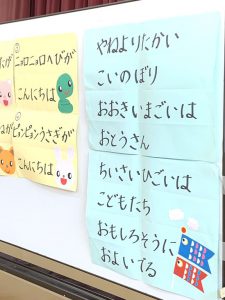 たが
③
ニョロニョロへびが
こんにちは
ねが
④
ピョンピョンうさぎが
こんにちは
やねよりたかい
こいのぼり
おおきいまごいは
おとうさん
ちいさいひごいは
こどもたち
おもしろそうに
およいでる